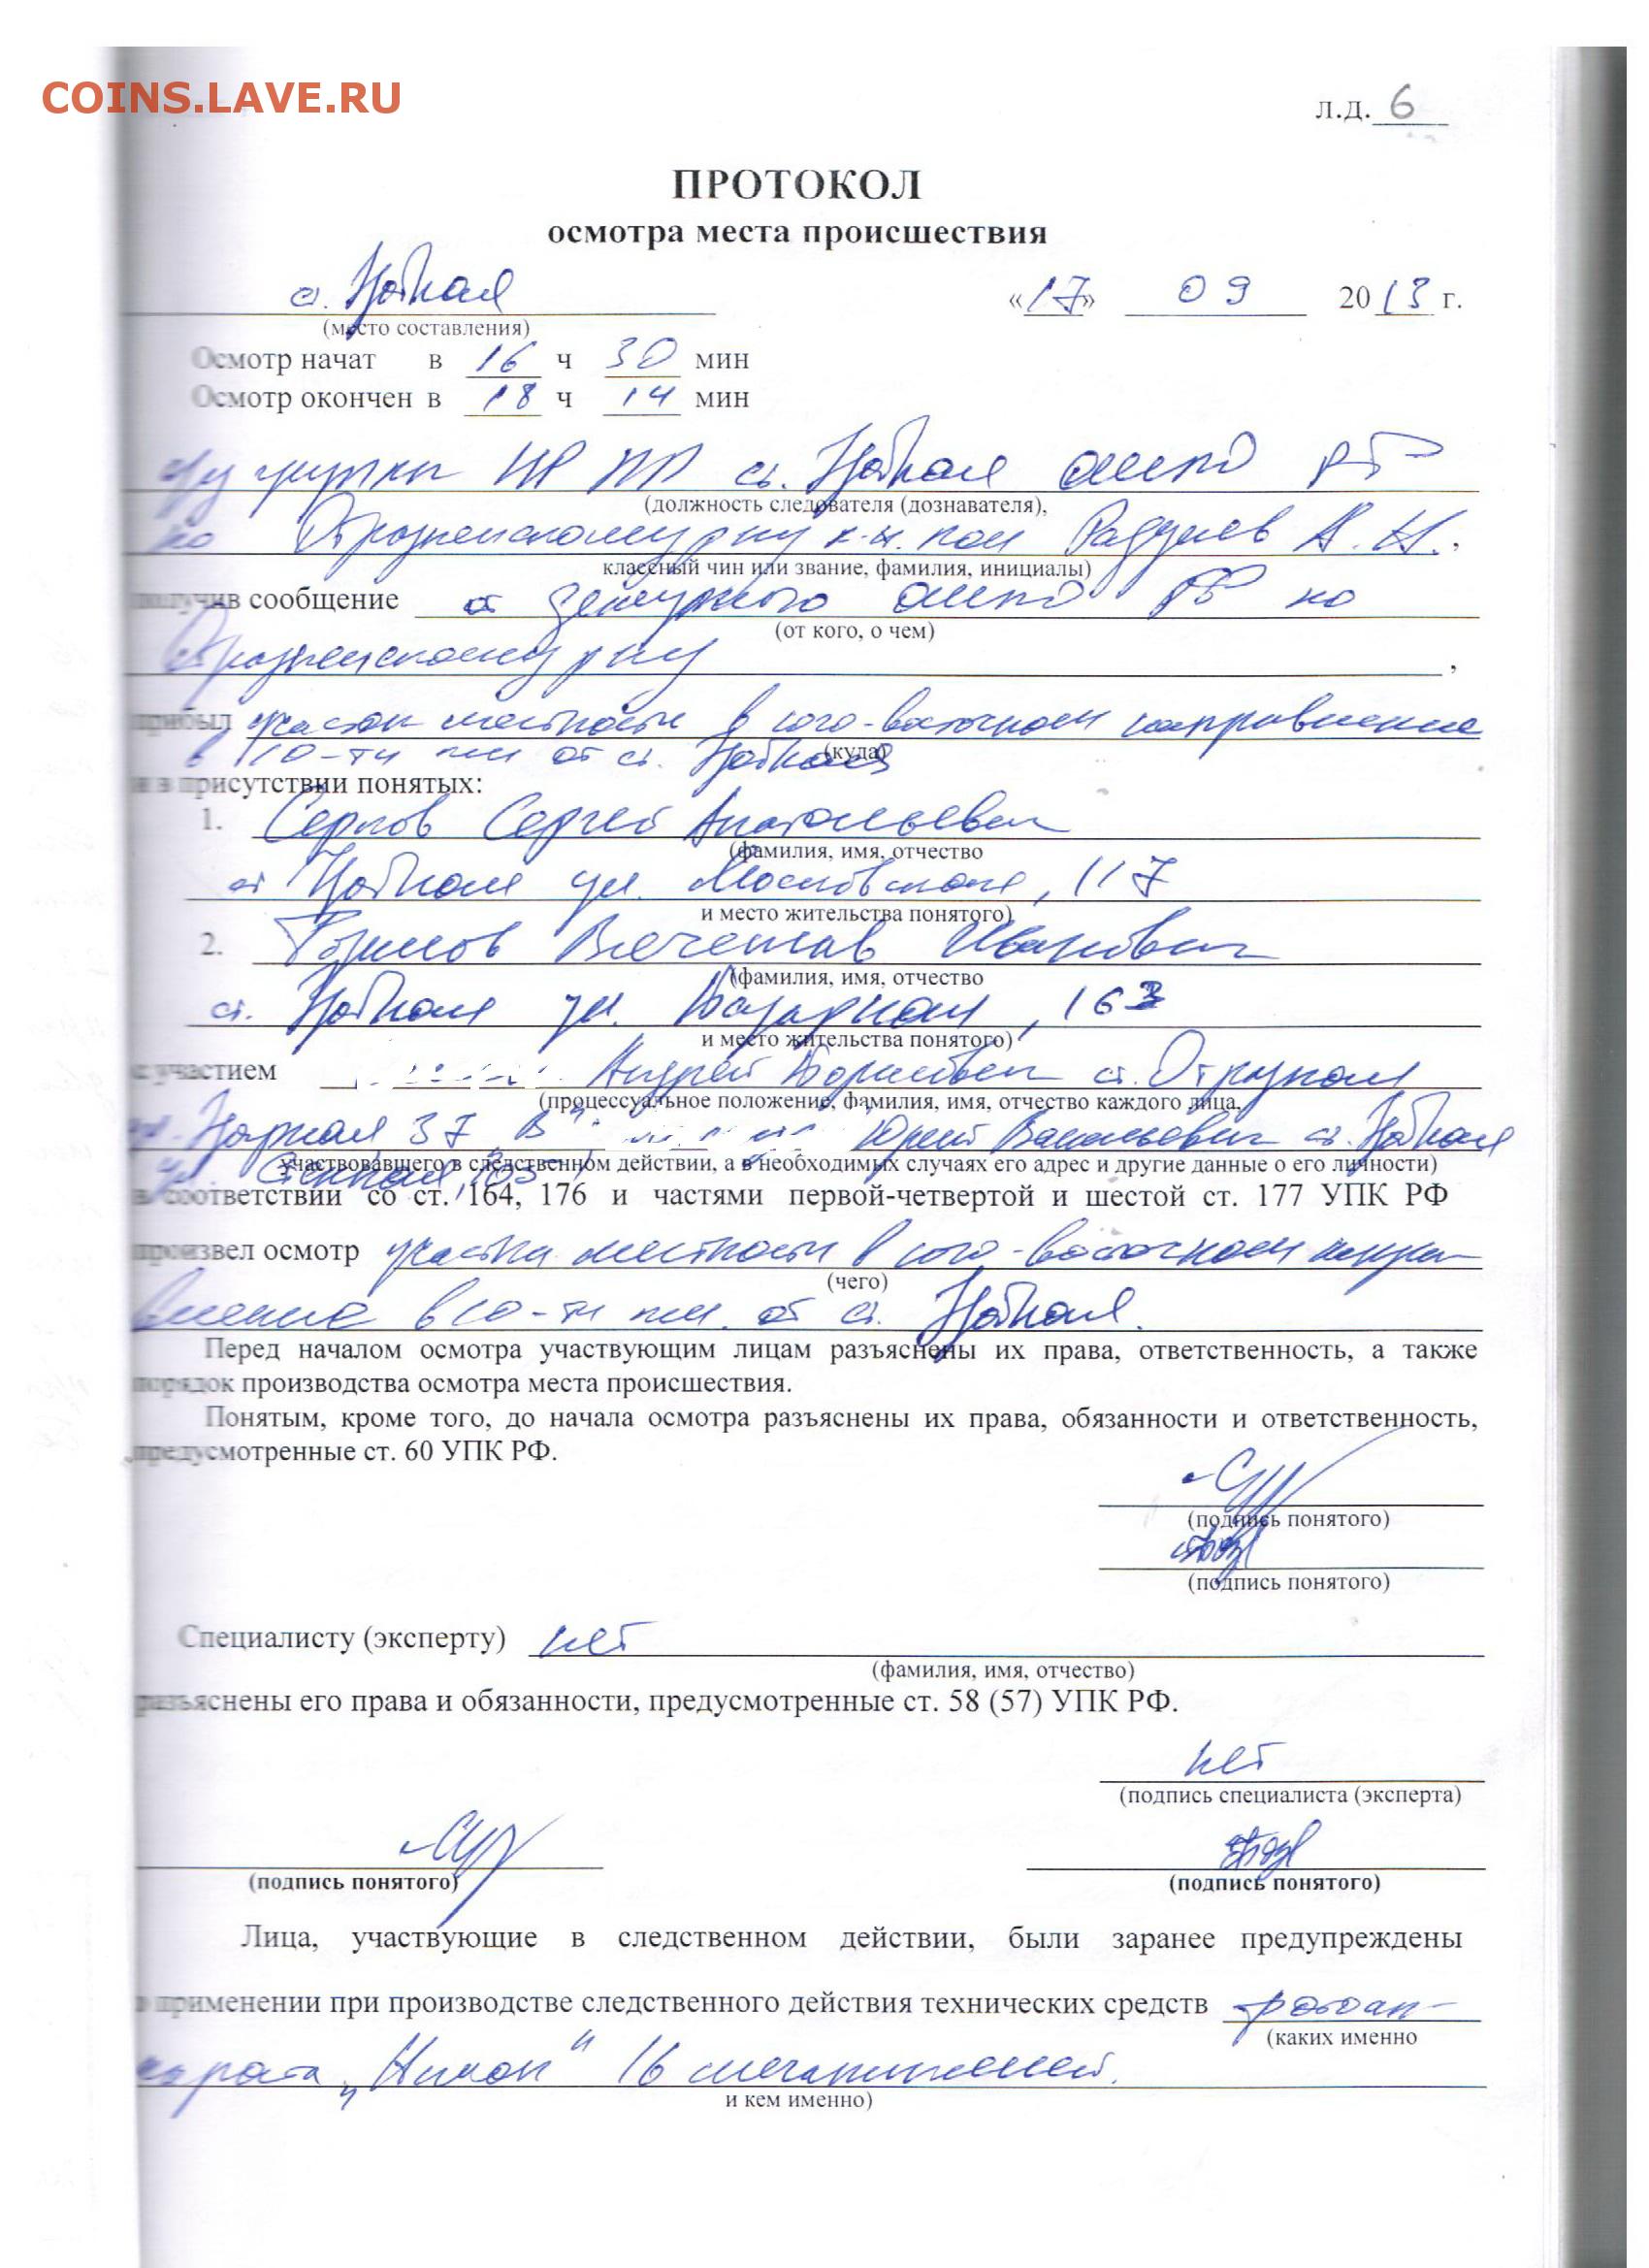 COINS.LAVE.RU
л.д. 6
ПРОТОКОЛ
осмотра места происшествия
«17» 09 2013 г.
(место составления)
Осмотр начат в 16 ч 30 мин
Осмотр окончен в 18 ч 14 мин
о/у группы УР ПП ст.
(должность следователя (дознавателя),
по
классный чин или звание, фамилия, инициалы)
получив сообщение от дежурного по
(от кого, о чем)
р-ну
,
прибыл участок местности в юго-восточном направлении
в 10-ти км от ст.
(куда)
и в присутствии понятых:
1. Сергей Анатольевич
(фамилия, имя, отчество
ул. Московская, 117
и место жительства понятого)
2. Вячеслав Иванович
(фамилия, имя, отчество
ст. ул. Базарная, 163
и место жительства понятого)
с участием Андрей Борисович ст.
(процессуальное положение, фамилия, имя, отчество каждого лица,
37 Юрий Васильевич ст.
участвовавшего в следственном действии, а в необходимых случаях его адрес и другие данные о его личности)
в соответствии со ст. 164, 176 и частями первой-четвертой и шестой ст. 177 УПК РФ
произвел осмотр участка местности в юго-восточном напра-
(чего)
влении в 10-ти км. от ст.
Перед началом осмотра участвующим лицам разъяснены их права, ответственность, а также
порядок производства осмотра места происшествия.
Понятым, кроме того, до начала осмотра разъяснены их права, обязанности и ответственность,
предусмотренные ст. 60 УПК РФ.
(подпись понятого)
(подпись понятого)
Специалисту (эксперту) нет
(фамилия, имя, отчество)
разъяснены его права и обязанности, предусмотренные ст. 58 (57) УПК РФ.
нет
(подпись специалиста (эксперта)
(подпись понятого) (подпись понятого)
Лица, участвующие в следственном действии, были заранее предупреждены
о применении при производстве следственного действия технических средств фотоап-
(каких именно
парата „Никон" 16 мегапикселей.
и кем именно)